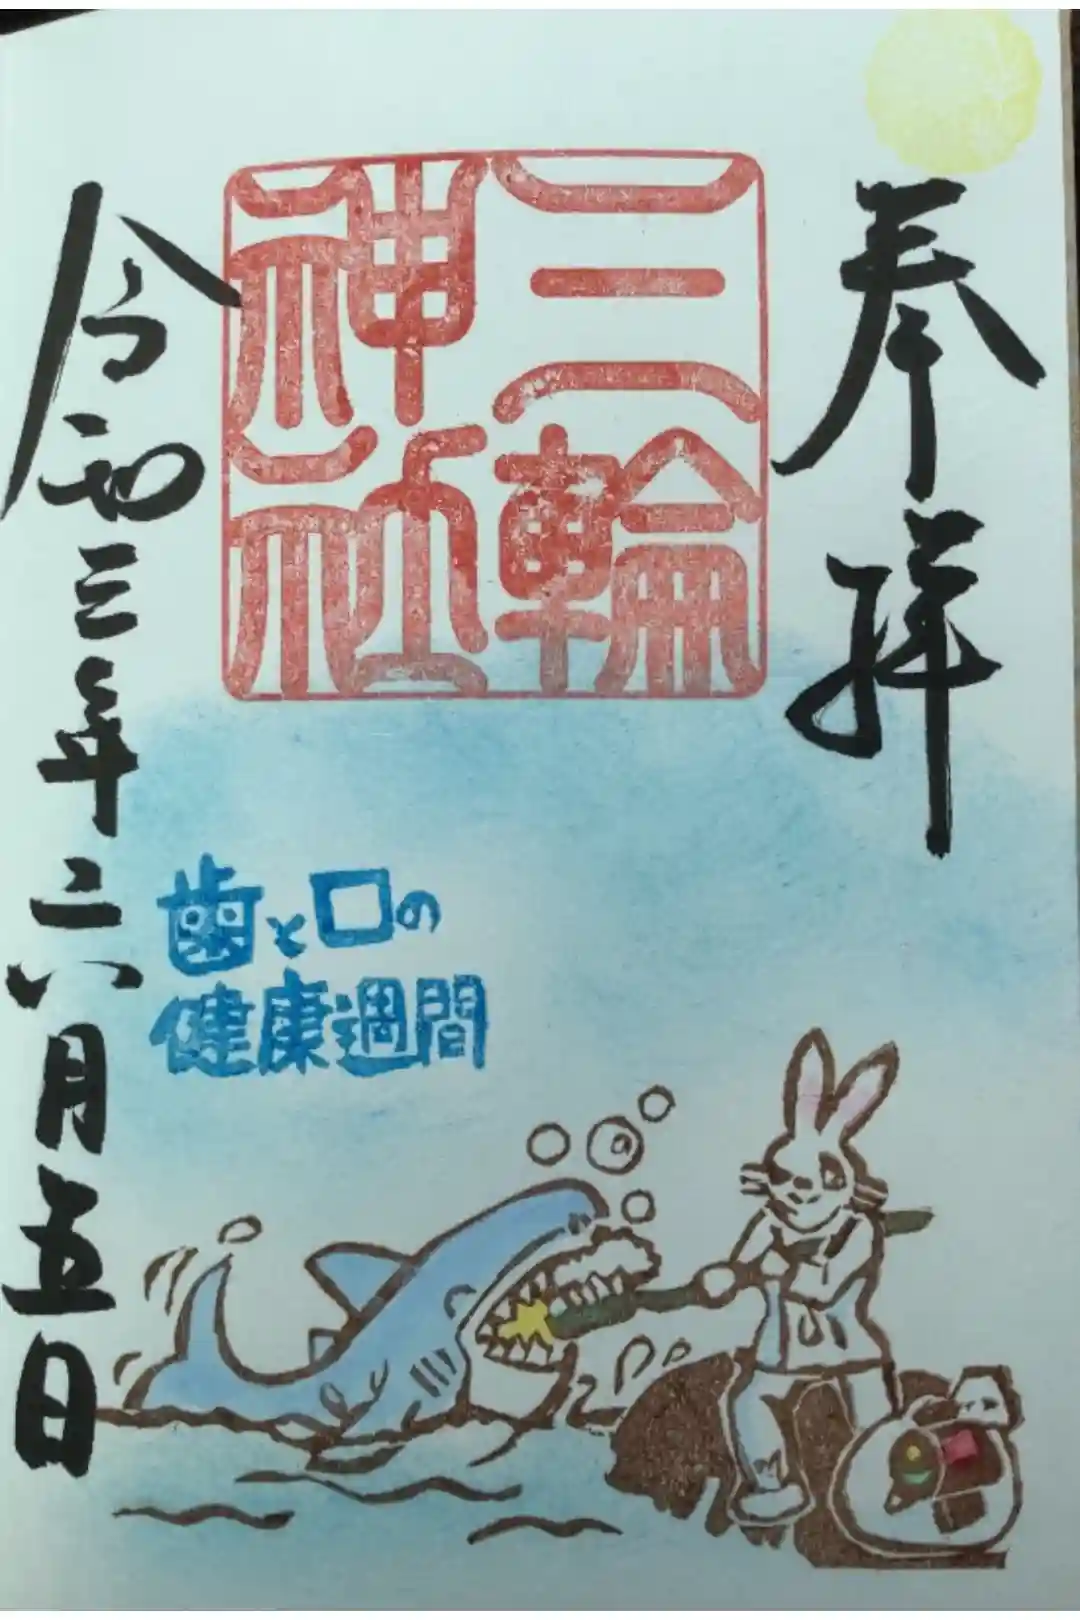 奉拝
三輪
神社
歯と口の
健康週間
令和三年六月五日